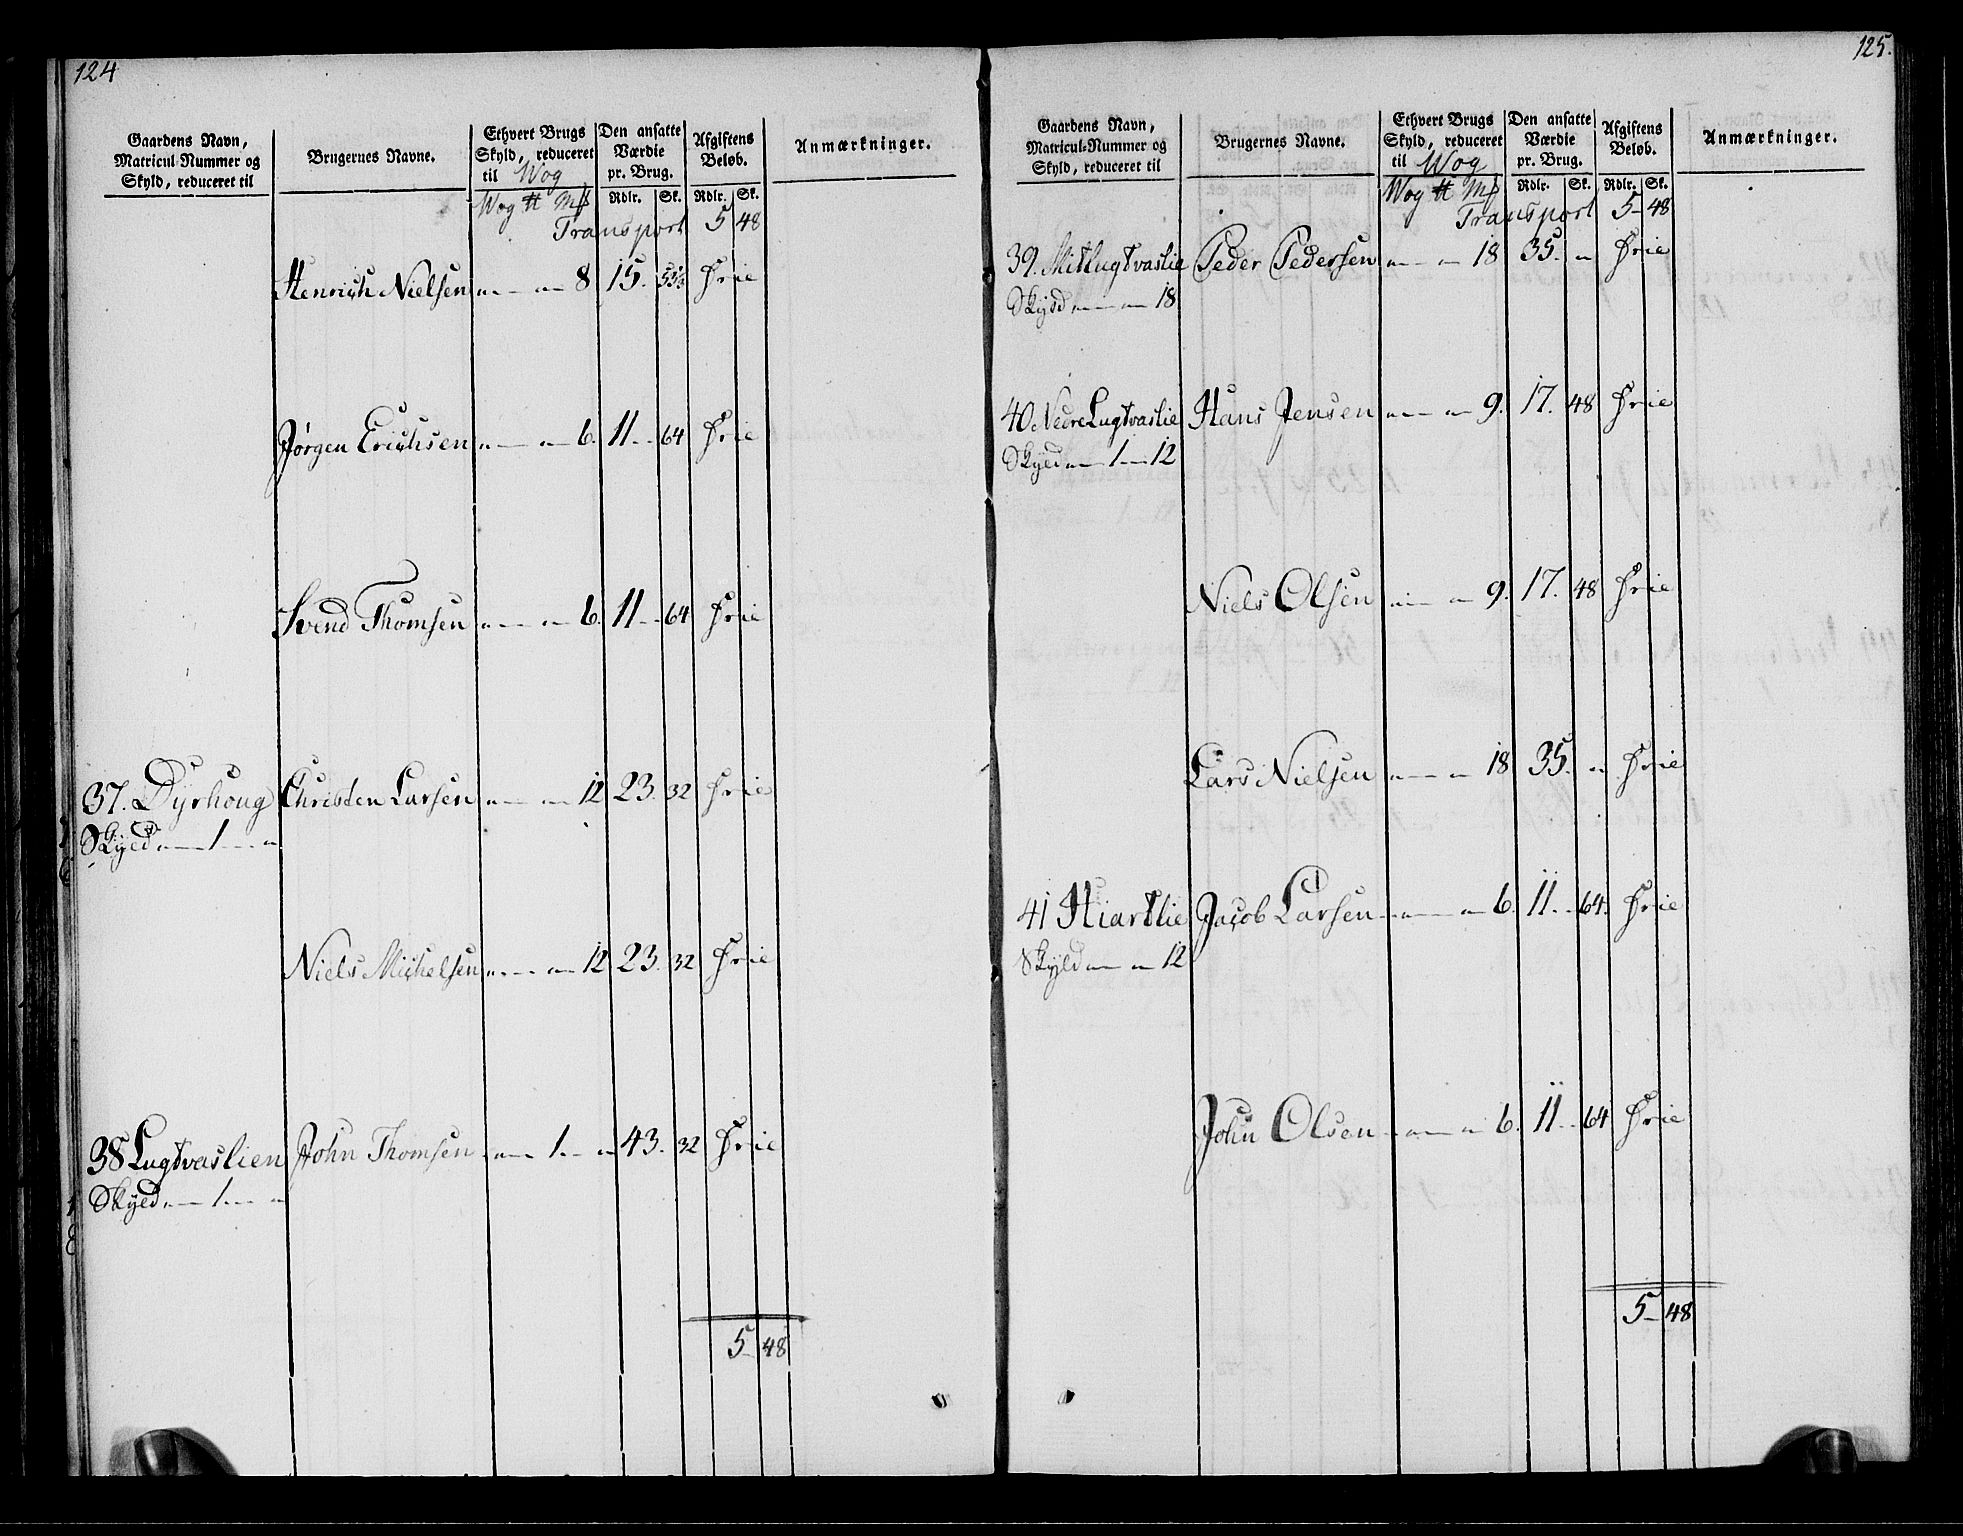 124
Gaardens Navn, Matricul-Nummer og Skyld, reduceret til | Brugernes Navne. | Ethvert Brugs Skyld, reduceret til Wog | Den ansatte Værdie pr. Brug. | Afgiftens Beløb. | Anmærkninger.
Wog ℔ Mß | Rdlr. | Sk. | Rdlr. | Sk.
Transport 5 48
Henrich Nielsen „ — „ 8 15. 53⅓ Frie
Jørgen Erichsen „ — „ 6. 11 - - 64 Frie
Svend Thomsen „ — „ 6. 11 - - 64 Frie
37. Dyrhoug Christen Larsen „ — „ 12 23. 32 Frie
Skyld „ — 1 — „
Niels Michelsen „ — „ 12 23. 32 Frie
38 Lugtvaslien John Thomsen „ — 1. — „ 43. 32 Frie
Skyld „ — 1. — „
5 - 48
125.
Gaardens Navn, Matricul-Nummer og Skyld, reduceret til | Brugernes Navne. | Ethvert Brugs Skyld, reduceret til Wog | Den ansatte Værdie pr. Brug. | Afgiftens Beløb. | Anmærkninger.
Wog ℔ Mß | Rdlr. | Sk. | Rdlr. | Sk.
Transport 5 - 48
39. MitLugtvaslie Peder Pedersen „ — „ 18 35. „ Frie
Skyld „ — „ 18
40 NedreLugtvaslie Hans Jensen „ — „ 9. 17. 48 Frie
Skyld „ — 1 — 12
Niels Olsen „ — „ 9. 17. 48 Frie
Lars Nielsen „ — „ 18 35. „ Frie
41 Hiartlie Jacob Larsen „ — „ 6. 11. - 64. Frie
Skyld „ — „ 12
John Olsen „ — „ 6. 11. - 64 Frie
5 - 48